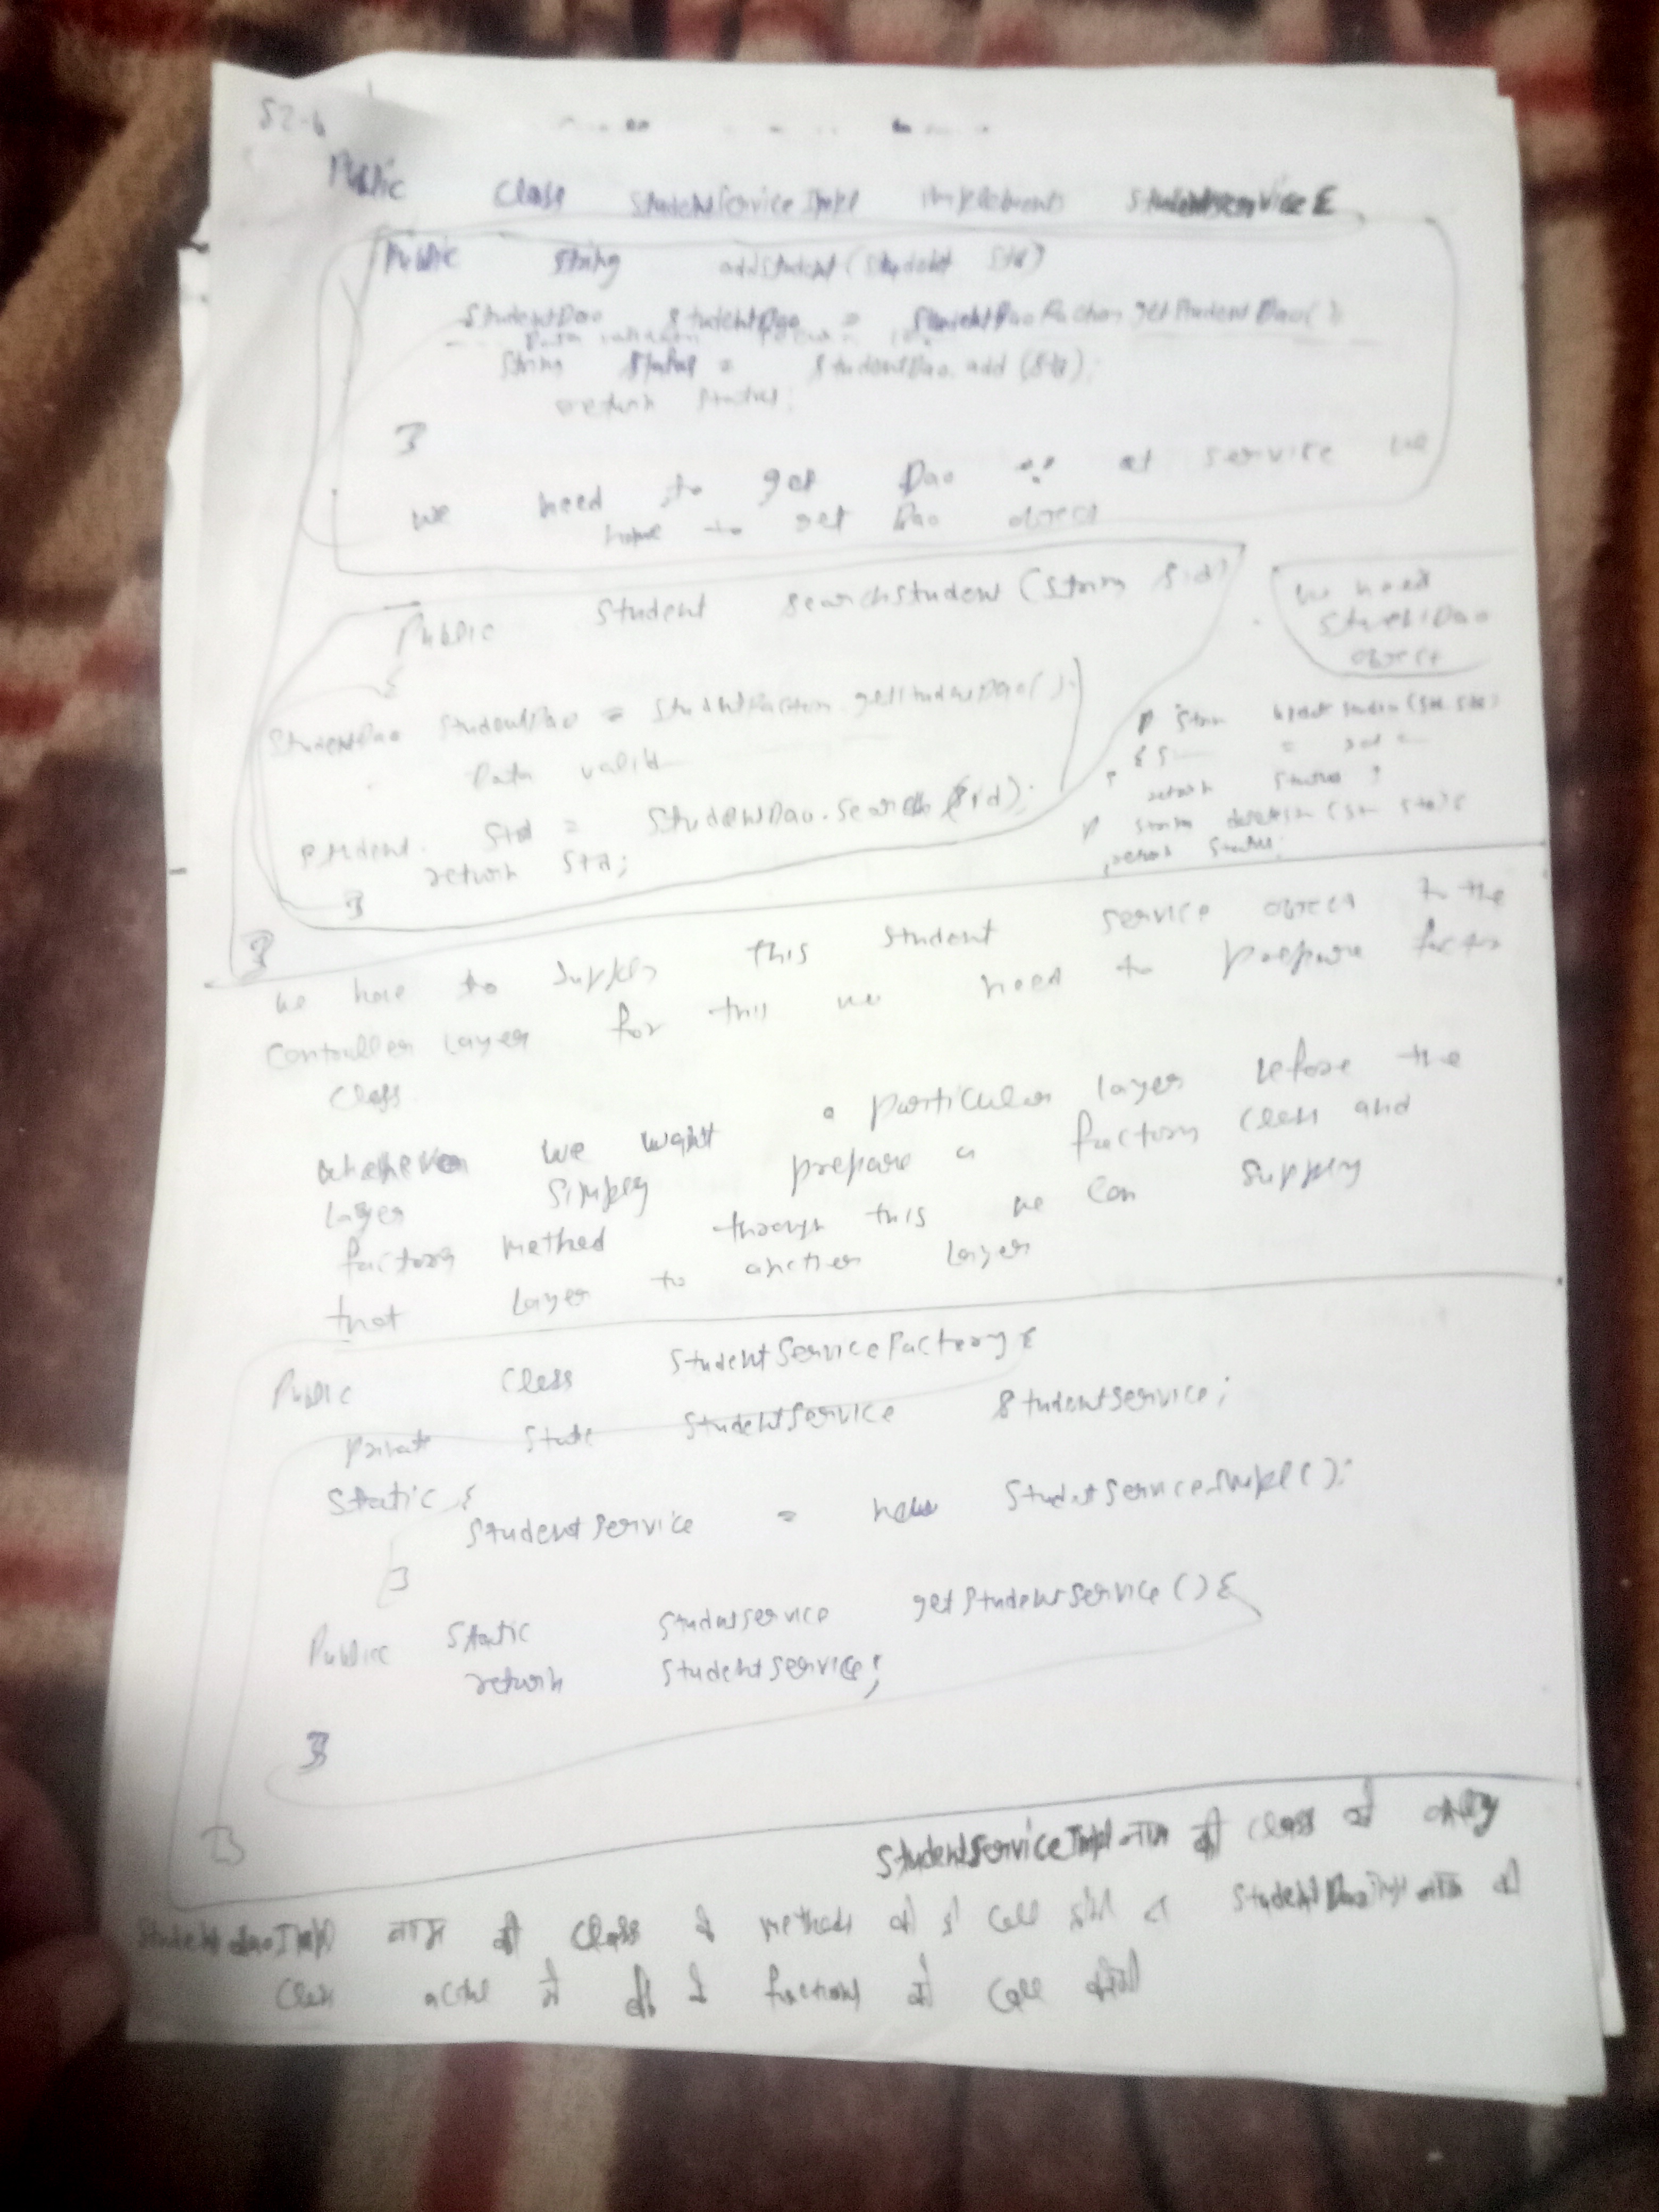 52-b
Public Class StudentServiceImpl implements StudentService {
Public String addStudent (Student Std)
StudentDao StudentDao = StudentDaoFactory.getStudentDao();
String Status = StudentDao.add (Std);
return Status;
}
we need to get Dao at service we
have to get Dao object
Public Student SearchStudent (String Sid)
{
we need
StudentDao
object
StudentDao StudentDao = StudentFactory.getStudentDao();
Data valid
Student Std = StudentDao.Search (Sid);
return Std;
}
return Status }
return Status;
}
we have to supply this student service object to the
controller layer for this we need to prepare factory
class
whenever we want a particular layer before the
layer simply prepare a factory class and
factory method through this we can supply
that layer to another layer
Public Class StudentServiceFactory {
Private Static StudentService StudentService;
Static {
StudentService = new StudentServiceImpl();
}
Public Static StudentService getStudentService () {
return StudentService;
}
}
StudentServiceImpl नाम की class में
StudentDaoImpl नाम की class के methods को call होंगे StudentDaoImpl नाम की
class में functions को call